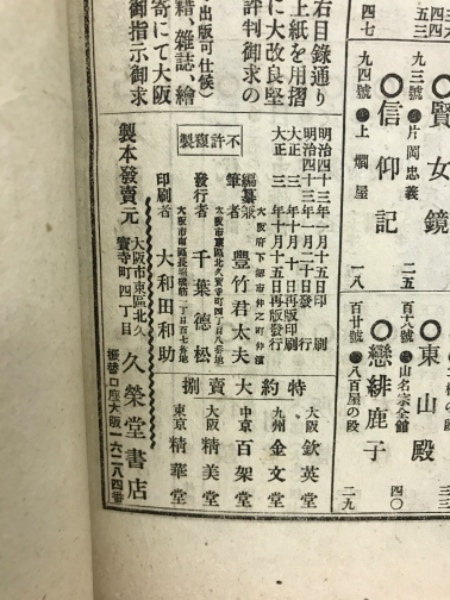 三六
四四
五三
四七
〇賢女鏡
九三號 片岡忠義
〇信仰記
九四號 上燗屋
二五
一八
〇東山殿
百十八號 山名宗全舘
〇戀緋鹿子
百廿號 八百屋の段
三三
四〇
二九
右目錄通り
上紙を用摺
に大改良堅
評判御求の
出版可仕候)
籍、雜誌、繪
寄にて大阪
御指示御求
不許複製
明治四十三年一月十五日印刷
明治四十三年一月二十日發行
大正三年十月十日再版印刷
大正三年十月十五日再版發行
大阪府下堺市仲之町仲濱
編纂兼筆者 豐竹君太夫
大阪市東區北久寶寺町四丁目八番地
發行者 千葉德松
印刷者 大和田和助
製本發賣元
大阪市東區北久寶寺町四丁目
久榮堂書店
振替口座大阪一六二八四番
特約大賣捌
大阪 欽英堂
九州 金文堂
中京 百架堂
大阪 精美堂
東京 精華堂